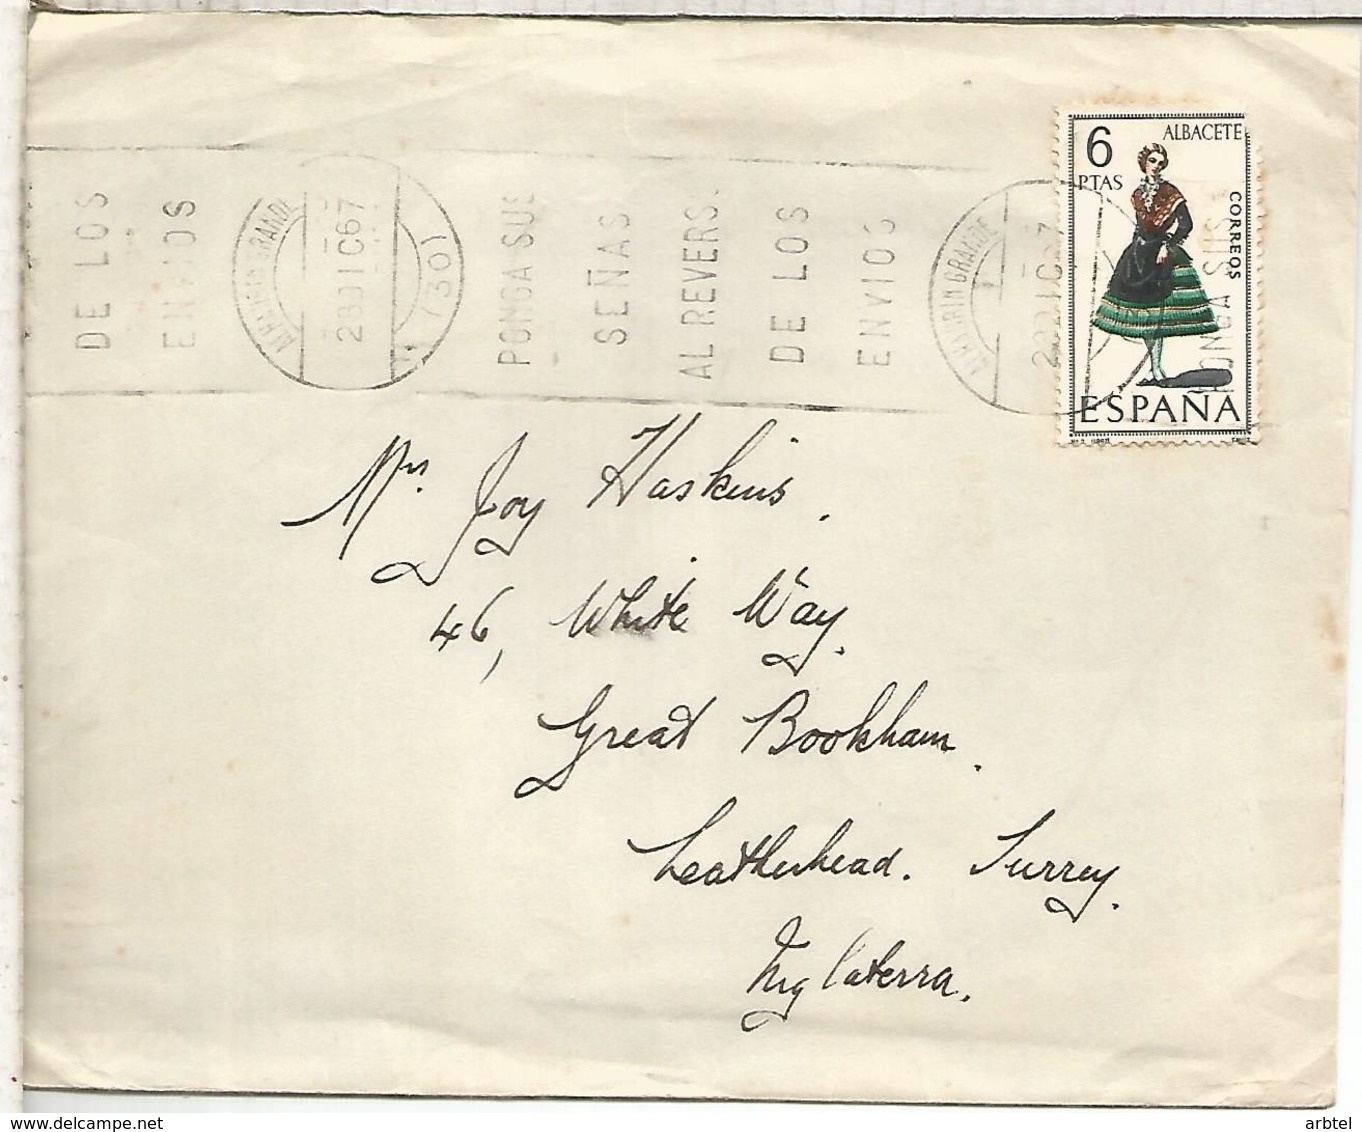 DE LOS
ENVIOS
ALHAURIN GRANDE
28 DIC 67
(30)
PONGA SUS
SEÑAS
AL REVERS
DE LOS
ENVIOS
ALHAURIN GRANDE
28 DIC 67
PONGA SUS
6
PTAS
ALBACETE
CORREOS
ESPAÑA
Mrs. Joy Haskins,
46, White Way.
Great Bookham.
Leatherhead. Surrey.
Inglaterra.
arbtel